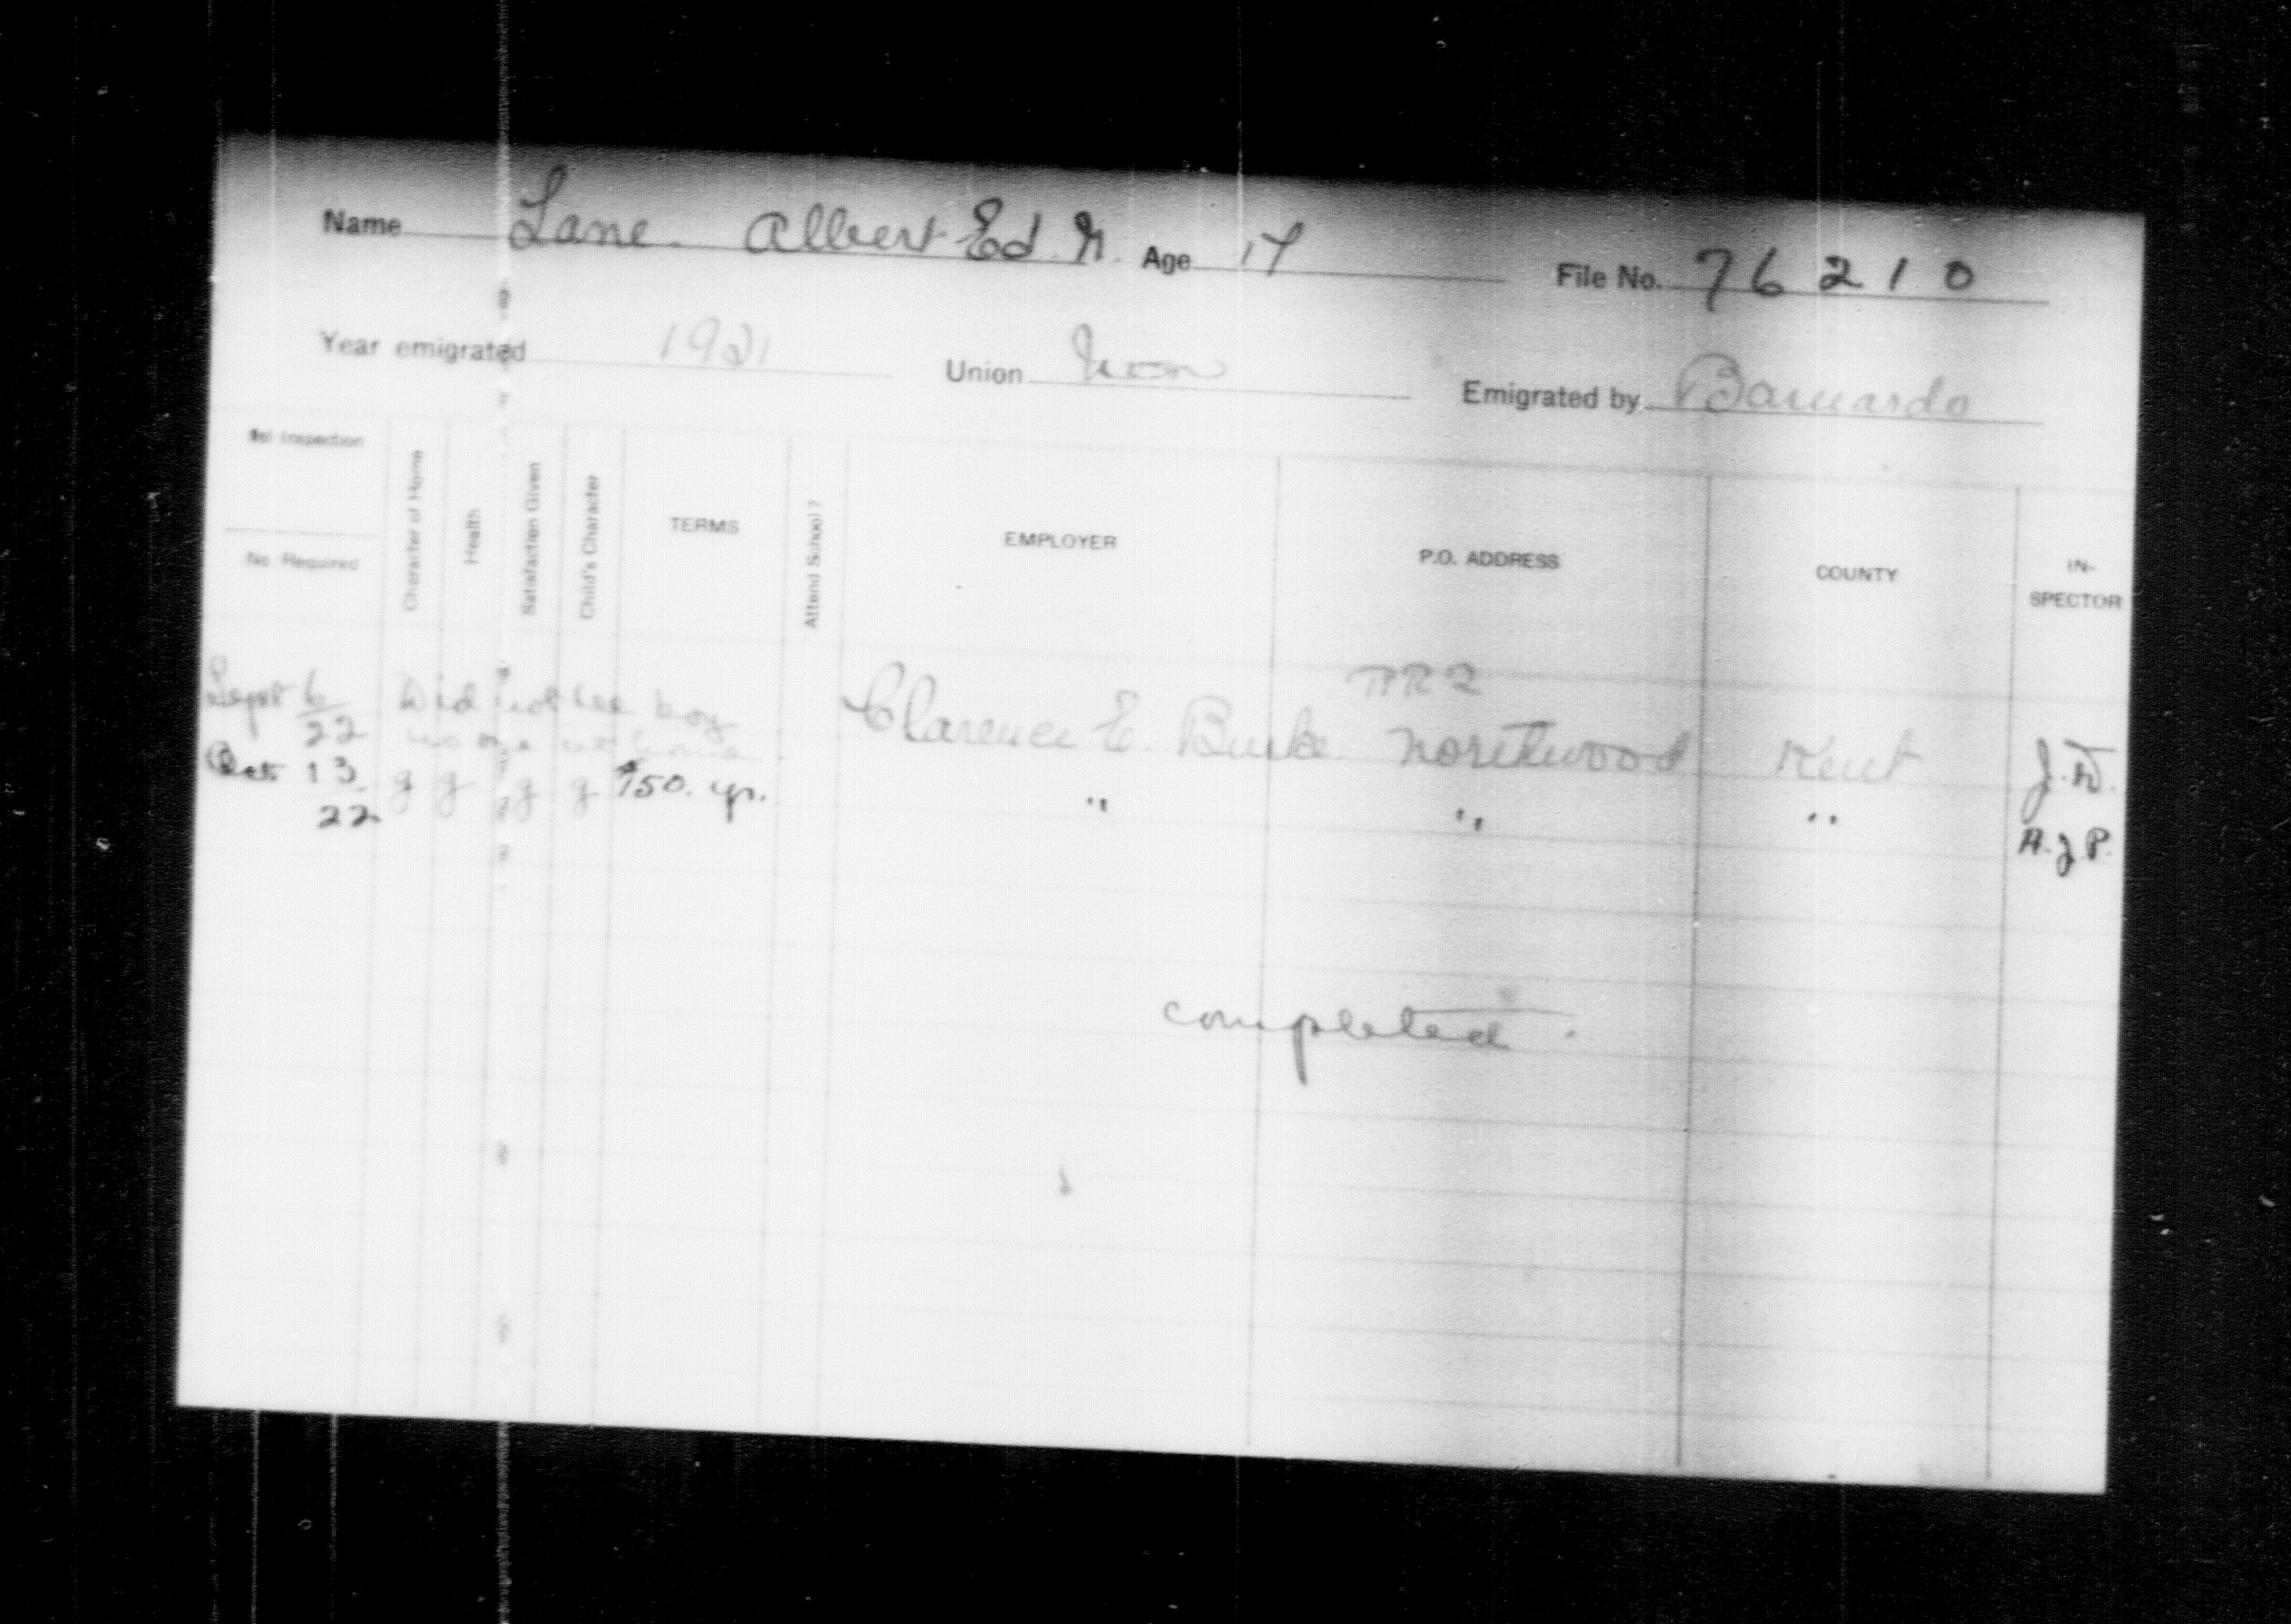 Name Lane. Albert Ed. Age 17 File No. 76210
Year emigrated 1921 Union Non Emigrated by Barnardo
1st Inspection
No. Required
Character of Home
Health
Satisfaction Given
Child's Character
TERMS
Attend School?
EMPLOYER
P.O. ADDRESS
COUNTY
IN-
SPECTOR
RR2
Sept 6 Did not see boy Clarence E. Burke Northwood Kent J.W.
22 no one at home
Oct 13 g g g g $150. yr. " " " A.J.P.
22
completed.